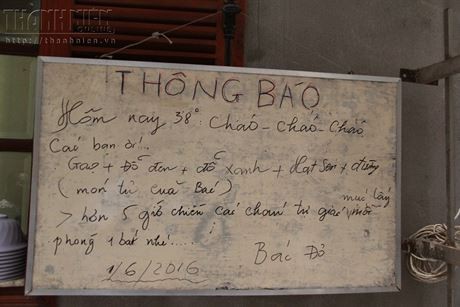 THANH NIÊN
ONLINE
http://thanhnien.vn
THÔNG BÁO
Hôm nay 38°: Cháo - Cháo - Cháo
Các bạn ơi!..
Gạo + Đỗ đen + đỗ xanh + Hạt sen + đường
(món tủ của Bác)
> hơn 5 giờ chiều các cháu tự giác múc lấy mỗi
phòng 1 bát nhé.....!
Bác Đỏ
1/6/2016